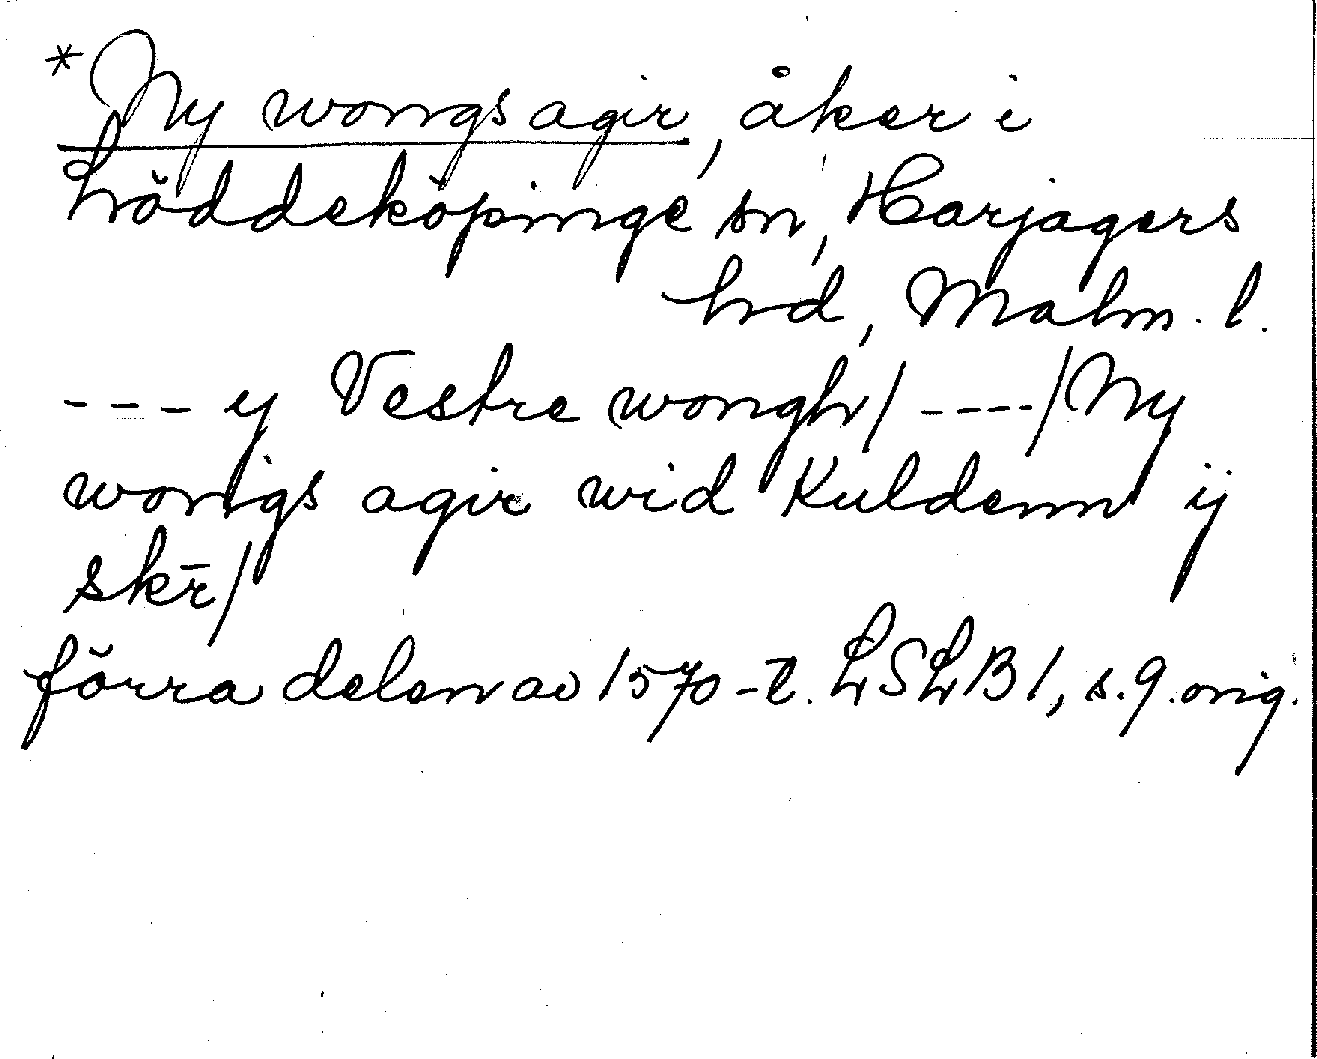 *Ny wongs agir, åker i
Löddeköpinge sn, Harjagers
hd, Malm. l.
--- y Vestre wongh/ ----/Ny
wongs agir wid Kuldenn ij
skr̄/
förra delen av 1570-t. LSLB 1, s. 9. orig.